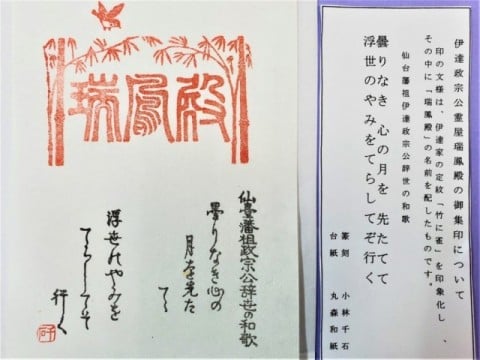 瑞鳳殿
仙臺藩祖政宗公辞世の和歌
曇りなき心の
月を先た
てゝ
浮世のやみを
てらしてそ
行く
伊達政宗公霊屋瑞鳳殿の御集印について
印の文様は、伊達家の定紋「竹に雀」を印象化し、
その中に「瑞鳳殿」の名前を配したものです。
仙台藩祖伊達政宗公辞世の和歌
曇りなき 心の月を 先たてて
浮世のやみをてらしてぞ行く
篆刻 小林千石
台紙 丸森和紙